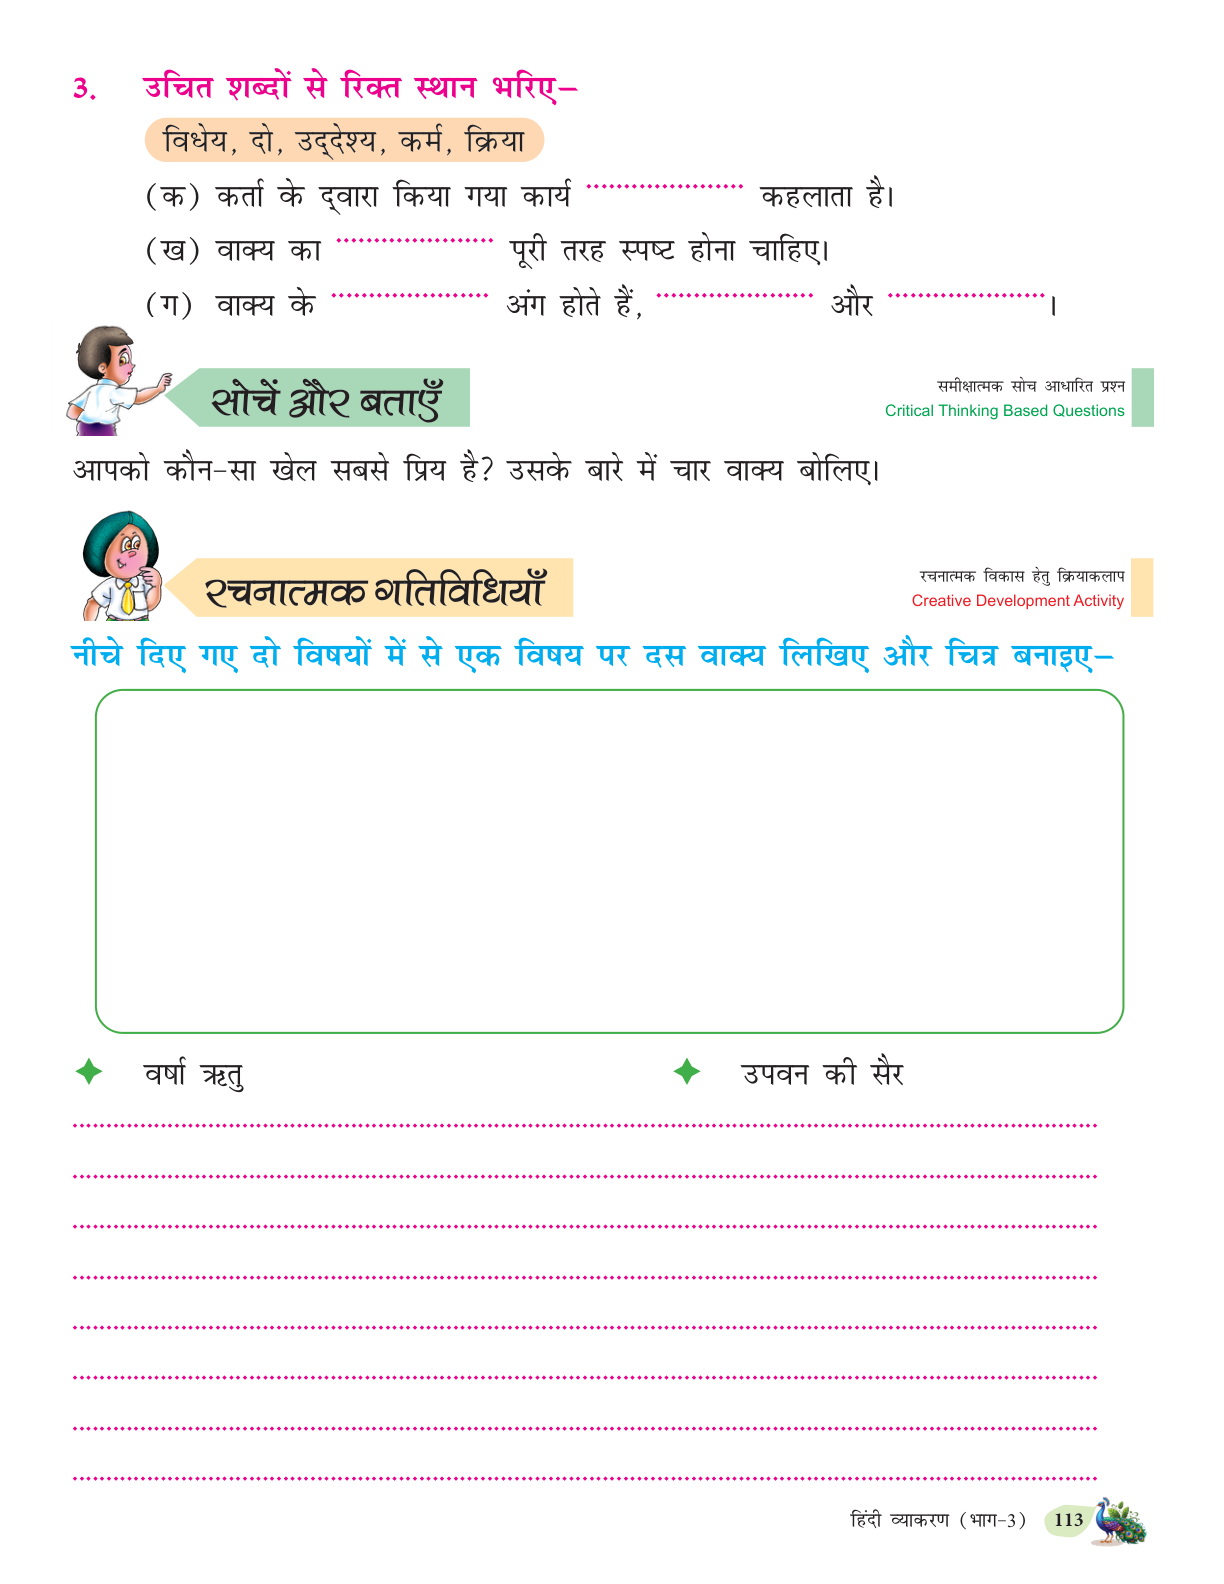 3. उचित शब्दों से रिक्त स्थान भरिए–
विधेय, दो, उद्देश्य, कर्म, क्रिया
(क) कर्ता के द्वारा किया गया कार्य ..................... कहलाता है।
(ख) वाक्य का ..................... पूरी तरह स्पष्ट होना चाहिए।
(ग) वाक्य के ..................... अंग होते हैं, ..................... और .....................।
सोचें और बताएँ
समीक्षात्मक सोच आधारित प्रश्न
Critical Thinking Based Questions
आपको कौन-सा खेल सबसे प्रिय है? उसके बारे में चार वाक्य बोलिए।
रचनात्मक गतिविधियाँ
रचनात्मक विकास हेतु क्रियाकलाप
Creative Development Activity
नीचे दिए गए दो विषयों में से एक विषय पर दस वाक्य लिखिए और चित्र बनाइए–
वर्षा ऋतु उपवन की सैर
हिंदी व्याकरण (भाग-3) 113